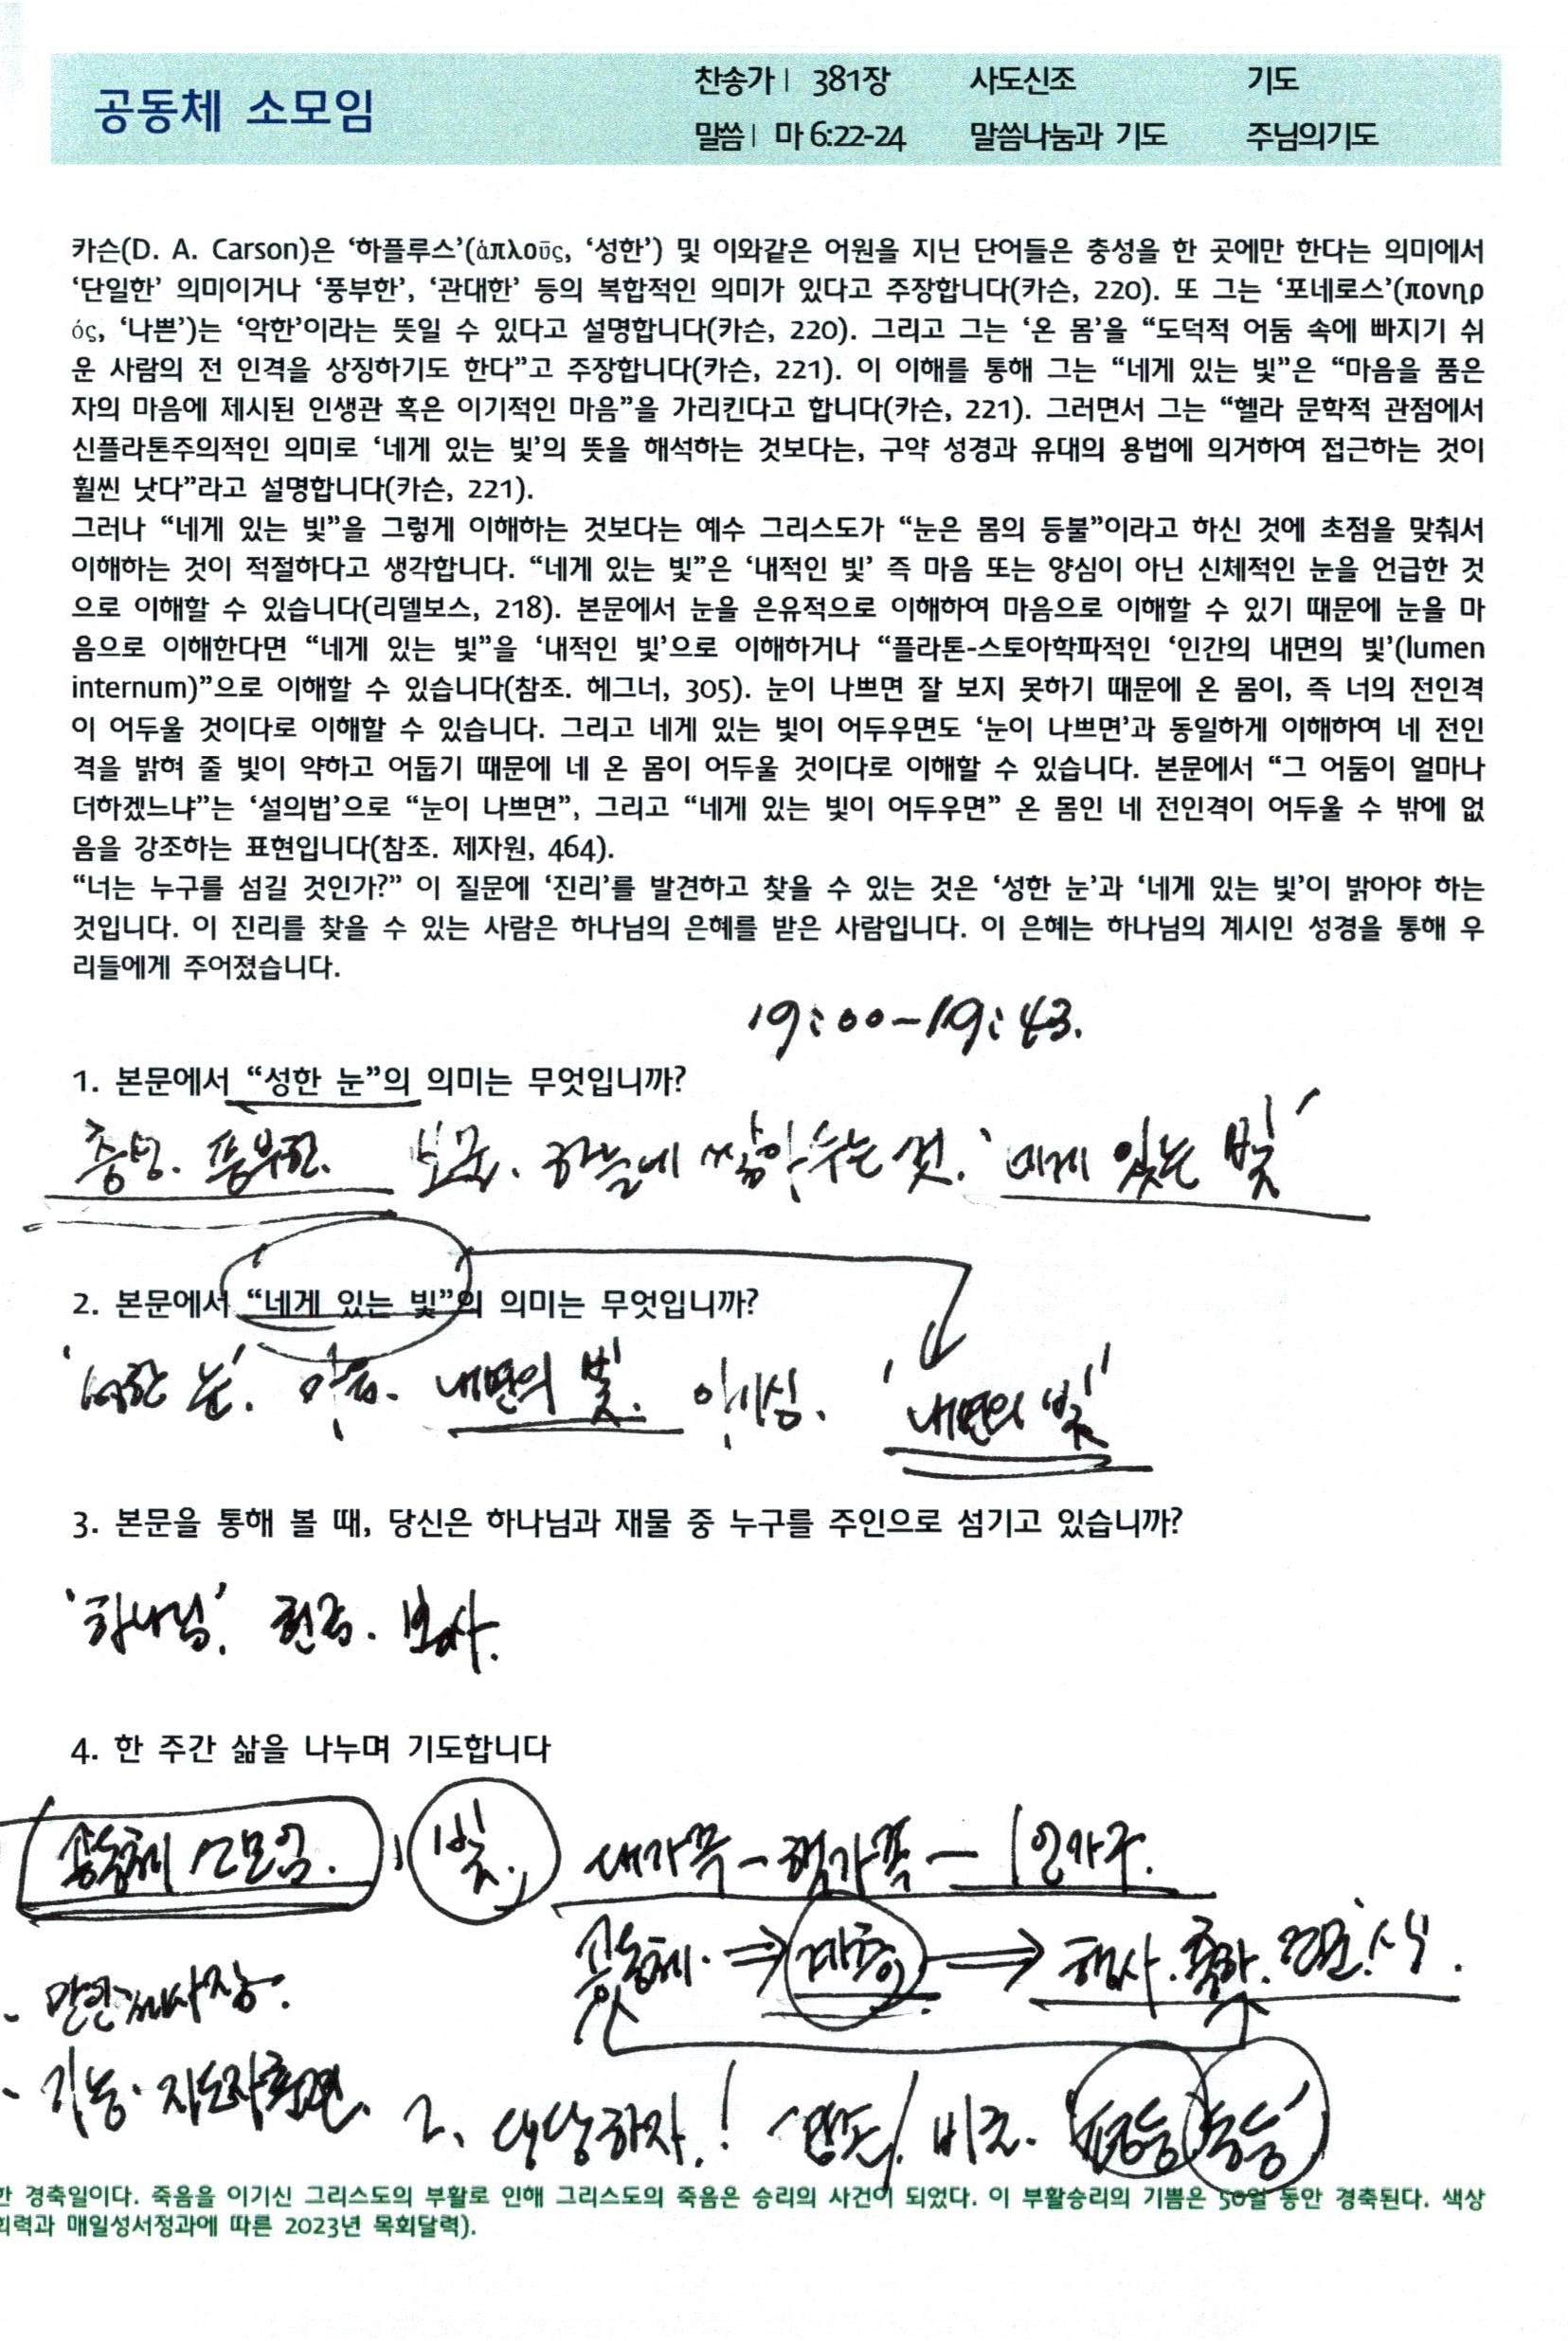 공동체 소모임
찬송가 | 381장 사도신조 기도
말씀 | 마 6:22-24 말씀나눔과 기도 주님의기도
카슨(D. A. Carson)은 ‘하플루스’(ἁπλοῦς, ‘성한’) 및 이와같은 어원을 지닌 단어들은 충성을 한 곳에만 한다는 의미에서
‘단일한’ 의미이거나 ‘풍부한’, ‘관대한’ 등의 복합적인 의미가 있다고 주장합니다(카슨, 220). 또 그는 ‘포네로스’(πονηρ
ός, ‘나쁜’)는 ‘악한’이라는 뜻일 수 있다고 설명합니다(카슨, 220). 그리고 그는 ‘온 몸’을 “도덕적 어둠 속에 빠지기 쉬
운 사람의 전 인격을 상징하기도 한다”고 주장합니다(카슨, 221). 이 이해를 통해 그는 “네게 있는 빛”은 “마음을 품은
자의 마음에 제시된 인생관 혹은 이기적인 마음”을 가리킨다고 합니다(카슨, 221). 그러면서 그는 “헬라 문학적 관점에서
신플라톤주의적인 의미로 ‘네게 있는 빛’의 뜻을 해석하는 것보다는, 구약 성경과 유대의 용법에 의거하여 접근하는 것이
훨씬 낫다”라고 설명합니다(카슨, 221).
그러나 “네게 있는 빛”을 그렇게 이해하는 것보다는 예수 그리스도가 “눈은 몸의 등불”이라고 하신 것에 초점을 맞춰서
이해하는 것이 적절하다고 생각합니다. “네게 있는 빛”은 ‘내적인 빛’ 즉 마음 또는 양심이 아닌 신체적인 눈을 언급한 것
으로 이해할 수 있습니다(리델보스, 218). 본문에서 눈을 은유적으로 이해하여 마음으로 이해할 수 있기 때문에 눈을 마
음으로 이해한다면 “네게 있는 빛”을 ‘내적인 빛’으로 이해하거나 “플라톤-스토아학파적인 ‘인간의 내면의 빛’(lumen
internum)”으로 이해할 수 있습니다(참조. 헤그너, 305). 눈이 나쁘면 잘 보지 못하기 때문에 온 몸이, 즉 너의 전인격
이 어두울 것이다로 이해할 수 있습니다. 그리고 네게 있는 빛이 어두우면도 ‘눈이 나쁘면’과 동일하게 이해하여 네 전인
격을 밝혀 줄 빛이 약하고 어둡기 때문에 네 온 몸이 어두울 것이다로 이해할 수 있습니다. 본문에서 “그 어둠이 얼마나
더하겠느냐”는 ‘설의법’으로 “눈이 나쁘면”, 그리고 “네게 있는 빛이 어두우면” 온 몸인 네 전인격이 어두울 수 밖에 없
음을 강조하는 표현입니다(참조. 제자원, 464).
“너는 누구를 섬길 것인가?” 이 질문에 ‘진리’를 발견하고 찾을 수 있는 것은 ‘성한 눈’과 ‘네게 있는 빛’이 밝아야 하는
것입니다. 이 진리를 찾을 수 있는 사람은 하나님의 은혜를 받은 사람입니다. 이 은혜는 하나님의 계시인 성경을 통해 우
리들에게 주어졌습니다.
19:00-19:43.
1. 본문에서 “성한 눈”의 의미는 무엇입니까?
충성. 풍부한. 보물. 하늘에 쌓아두는 것. ‘네게 있는 빛’
2. 본문에서 “네게 있는 빛”의 의미는 무엇입니까?
‘성한 눈’. 마음. 내면의 빛. 양심. ‘내면의 빛’
3. 본문을 통해 볼 때, 당신은 하나님과 재물 중 누구를 주인으로 섬기고 있습니까?
‘하나님’. 헌금. 봉사.
4. 한 주간 삶을 나누며 기도합니다
공동체 소모임. 빛. 대가족 - 핵가족 - 1인가구.
공동체. ⇒ ⇒ 행사.
2. 상상하자!
한 경축일이다. 죽음을 이기신 그리스도의 부활로 인해 그리스도의 죽음은 승리의 사건이 되었다. 이 부활승리의 기쁨은 50일 동안 경축된다. 색상
회력과 매일성서정과에 따른 2023년 목회달력).